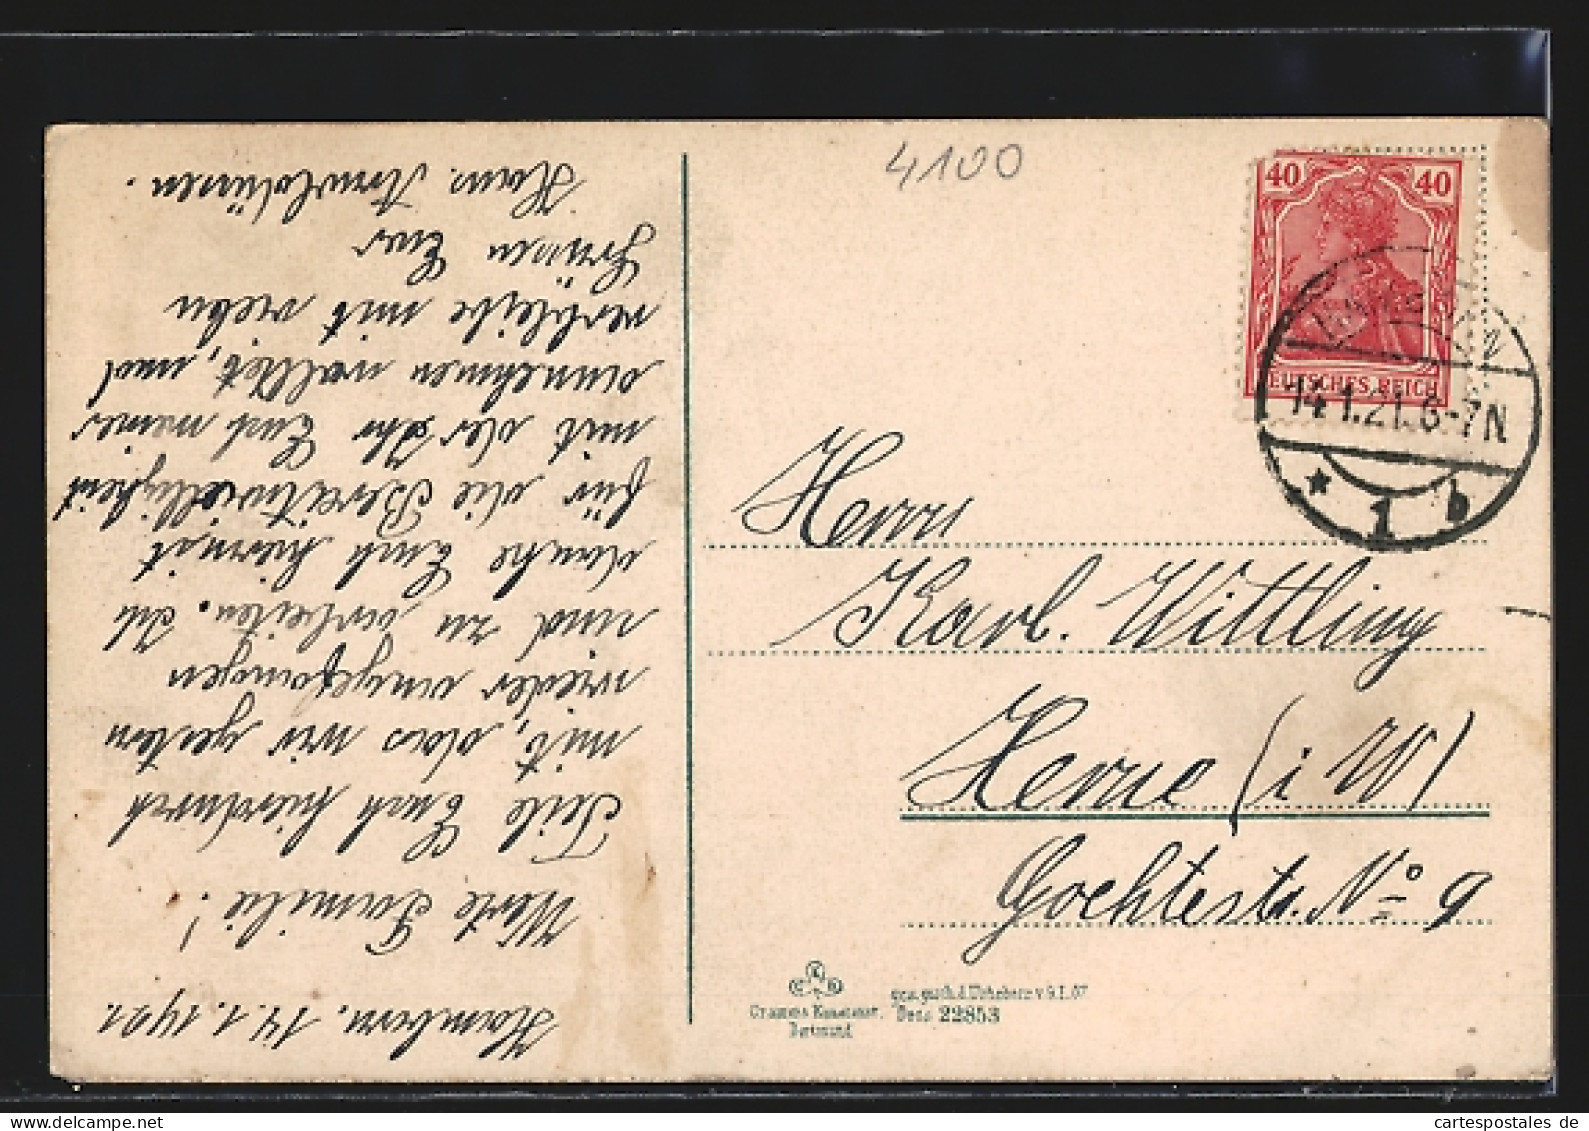 4100
40 40
DEUTSCHES REICH
14.1.21. 6-7N
* 1 b
Herrn
Karl. Wittling
Herne (i W)
Goethestr. No 9
Cramers Kunstanst. Dortmund
ges. gesch. d. Urheberr. v. 9.I.07
Dess 22853
Hamborn. 14.1.1921.
Werte Familie!
Teile Euch hierdurch
mit, das wir gestern
wieder angefangen
sind zu arbeiten. Ich
danke Euch hiermit
für die Bereitwilligkeit
mit der Ihr Euch meiner
annehmen wolltet, und
verbleibe mit vielen
Grüssen Euer
Hans.
cartespostales de